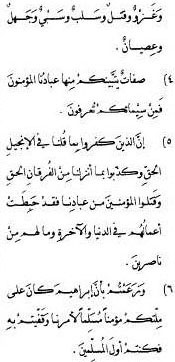 وَغَزْوٌ وَقَتْلٌ وَسَلْبٌ وَسَبْيٌ وَجَهْلٌ
وعِصيانٌ .
(٤) صفاتٌ بيَّنَتْكُم منها عبادُنا المؤمنونَ
فَمِنْ سِيْمائِكُم تُعرفونَ .
(٥) إنَّ الذينَ كفروا بما قُلنا في الإنجيلِ
الحقِّ وكذَّبوا بما أنزلنا مِنَ الفُرقانِ الحقِّ
وقتلوا المؤمنينَ من عبادِنا فقد حَبِطَتْ
أعمالُهم في الدنيا والآخرةِ وما لهم مِن
ناصرينَ .
(٦) وَزَعَمْتُم بأنَّ إبراهيمَ كانَ على
مِلَّتِكم مؤمناً مُسلِماً لأمرِنا وَقَفَّيتُم بهِ
فكنتم أولَ المُسلمينَ .